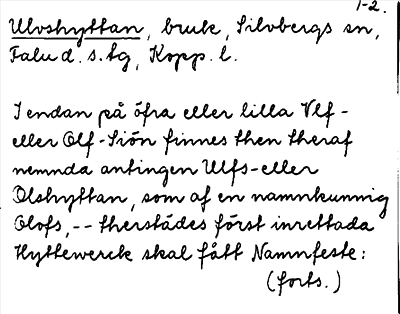 1-2.
Ulvshyttan, bruk, Silvbergs sn,
Falu d. s. tg, Kopp. l.
I endan på öfra eller lilla Vlf-
eller Olf-Siön finnes then theraf
nemnda antingen Ulfs- eller
Olshyttan, som af en namnkunnig
Olofs, -- therstädes först inrettada
Hyttewerck skal fått Namnfeste:
(forts.)